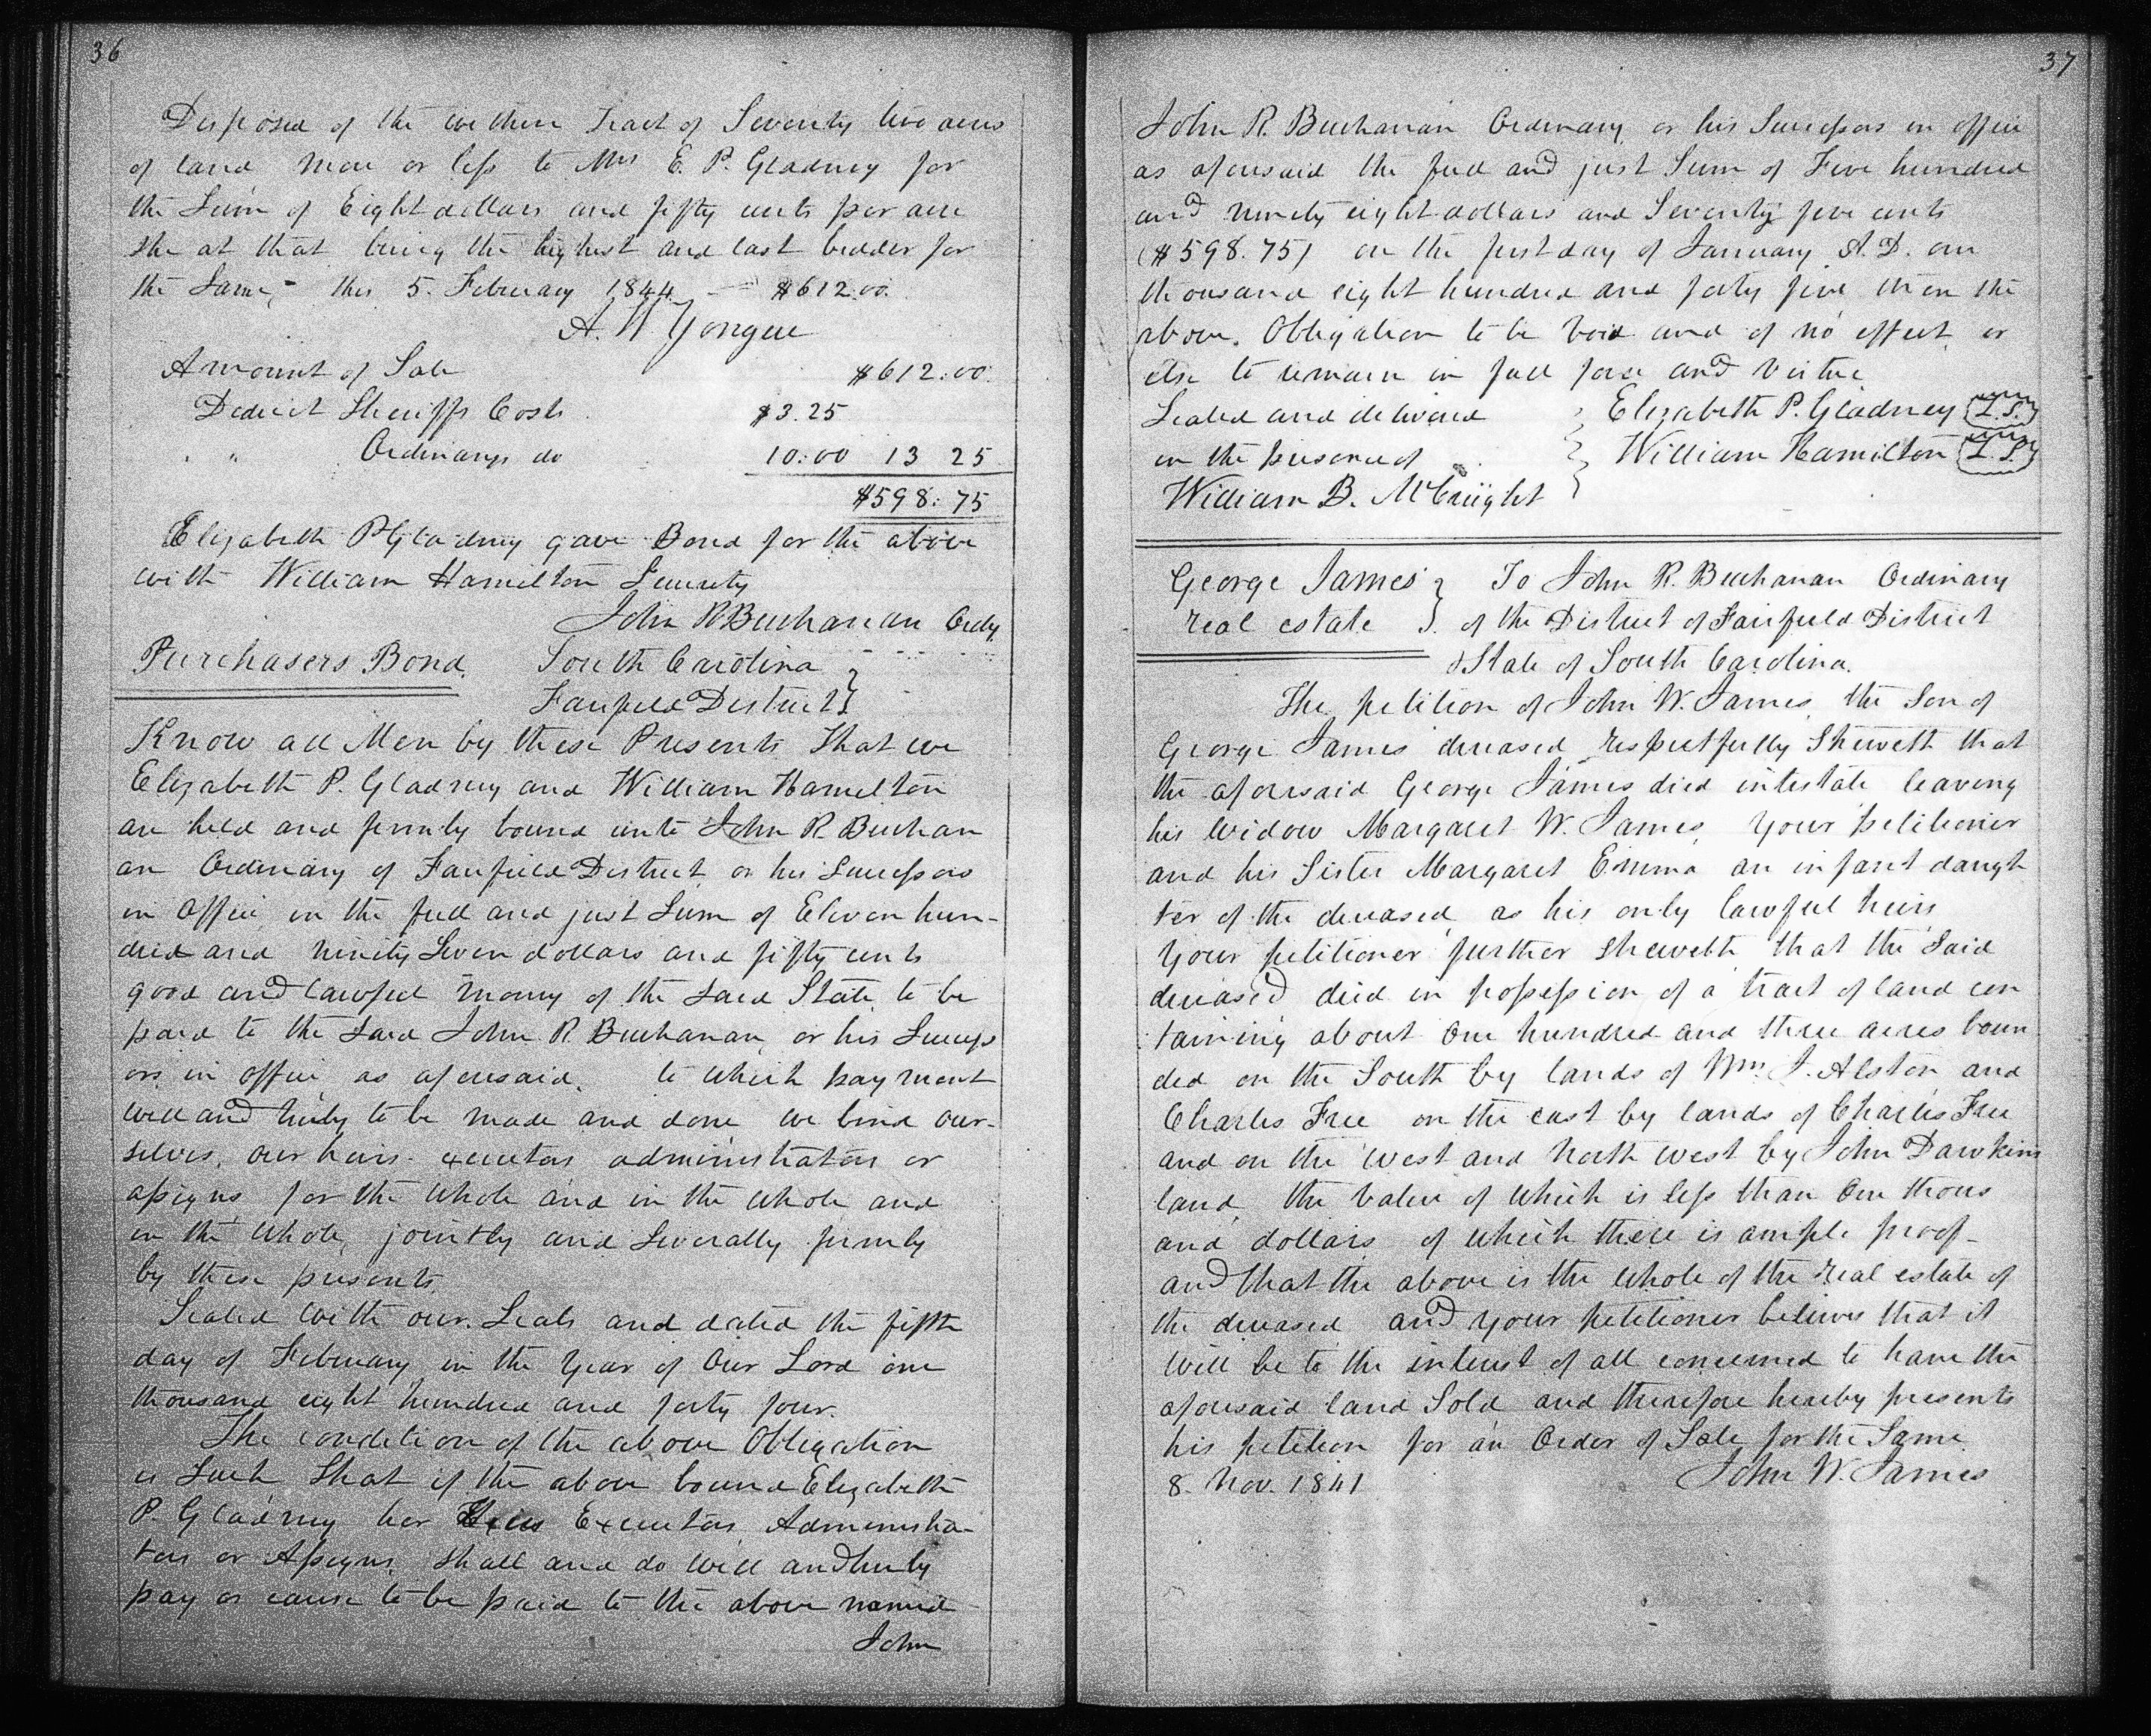 36
Disposed of the within Tract of Seventy two acres
of land more or less to Mrs E. P. Gladney for
the Sum of Eight dollars and fifty cents per acre
she at that being the highest and last bidder for
the Same, this 5. February 1844 — $612.00.
A. W Yongue
Amount of Sale $612:00.
Deduct Sheriffs Costs $3.25
" " Ordinarys do 10:00 13 25
$598:75
Elizabeth P Gladney gave Bond for the above
with William Hamilton Security
John R Buchanan Ordy.
Purchasers Bond. South Carolina }
Fairfield District }
Know all Men by these Presents That we
Elizabeth P. Gladney and William Hamilton
are held and firmly bound unto John R. Buchan
an Ordinary of Fairfield District or his Successors
in Office in the full and just Sum of Eleven hun-
dred and ninety Seven dollars and fifty cents
good and lawful money of the said State to be
paid to the said John R. Buchanan, or his Success
ors in office as aforesaid. to which payment
well and truly to be made and done we bind our-
selves, our heirs executors administrators or
assigns for the whole and in the whole and
in the whole, jointly and Severally firmly
by these presents.
Sealed with our Seals and dated the fifth
day of February in the Year of Our Lord one
thousand eight hundred and forty four.
The condition of the above Obligation
is Such, That if the above bound Elizabeth
P. Gladney her Heirs Executors Administra-
tors or Assigns, shall and do well and truly
pay or cause to be paid to the above named
John
37
John R. Buchanan Ordinary or his Successors in office
as aforesaid the full and just Sum of Five hundred
and ninety eight dollars and Seventy five cents
($598.75) on the first day of January A. D. one
thousand eight hundred and forty five then the
above Obligation to be void and of no effect or
else to remain in full force and virtue
Sealed and delivered } Elizabeth P. Gladney L.S.
in the presence of } William Hamilton L.S.
William B. McCreight }
George James } To John R. Buchanan Ordinary
real estate }. of the District of Fairfield District
& State of South Carolina.
The petition of John W. James, the Son of
George James deceased respectfully Sheweth that
the aforesaid George James died intestate leaving
his Widow Margaret W. James, Your petitioner
and his Sister Margaret Emma an infant daugh
ter of the deceased, as his only lawful heirs
Your petitioner further sheweth that the Said
deceased died in possession of a tract of land con
taining about One hundred and three acres boun
ded on the South by lands of Wm. J. Alston and
Charles Free on the east by lands of Charles Free
and on the West and North West by John Dawkins
land, the value of which is less than One thous
and dollars of which there is ample proof-
and that the above is the whole of the real estate of
the deceased and your petitioner believes that it
will be to the interest of all concerned to have the
aforesaid land Sold and therefore hereby presents
his petition for an Order of Sale for the Same.
8. Nov. 1841 John W. James